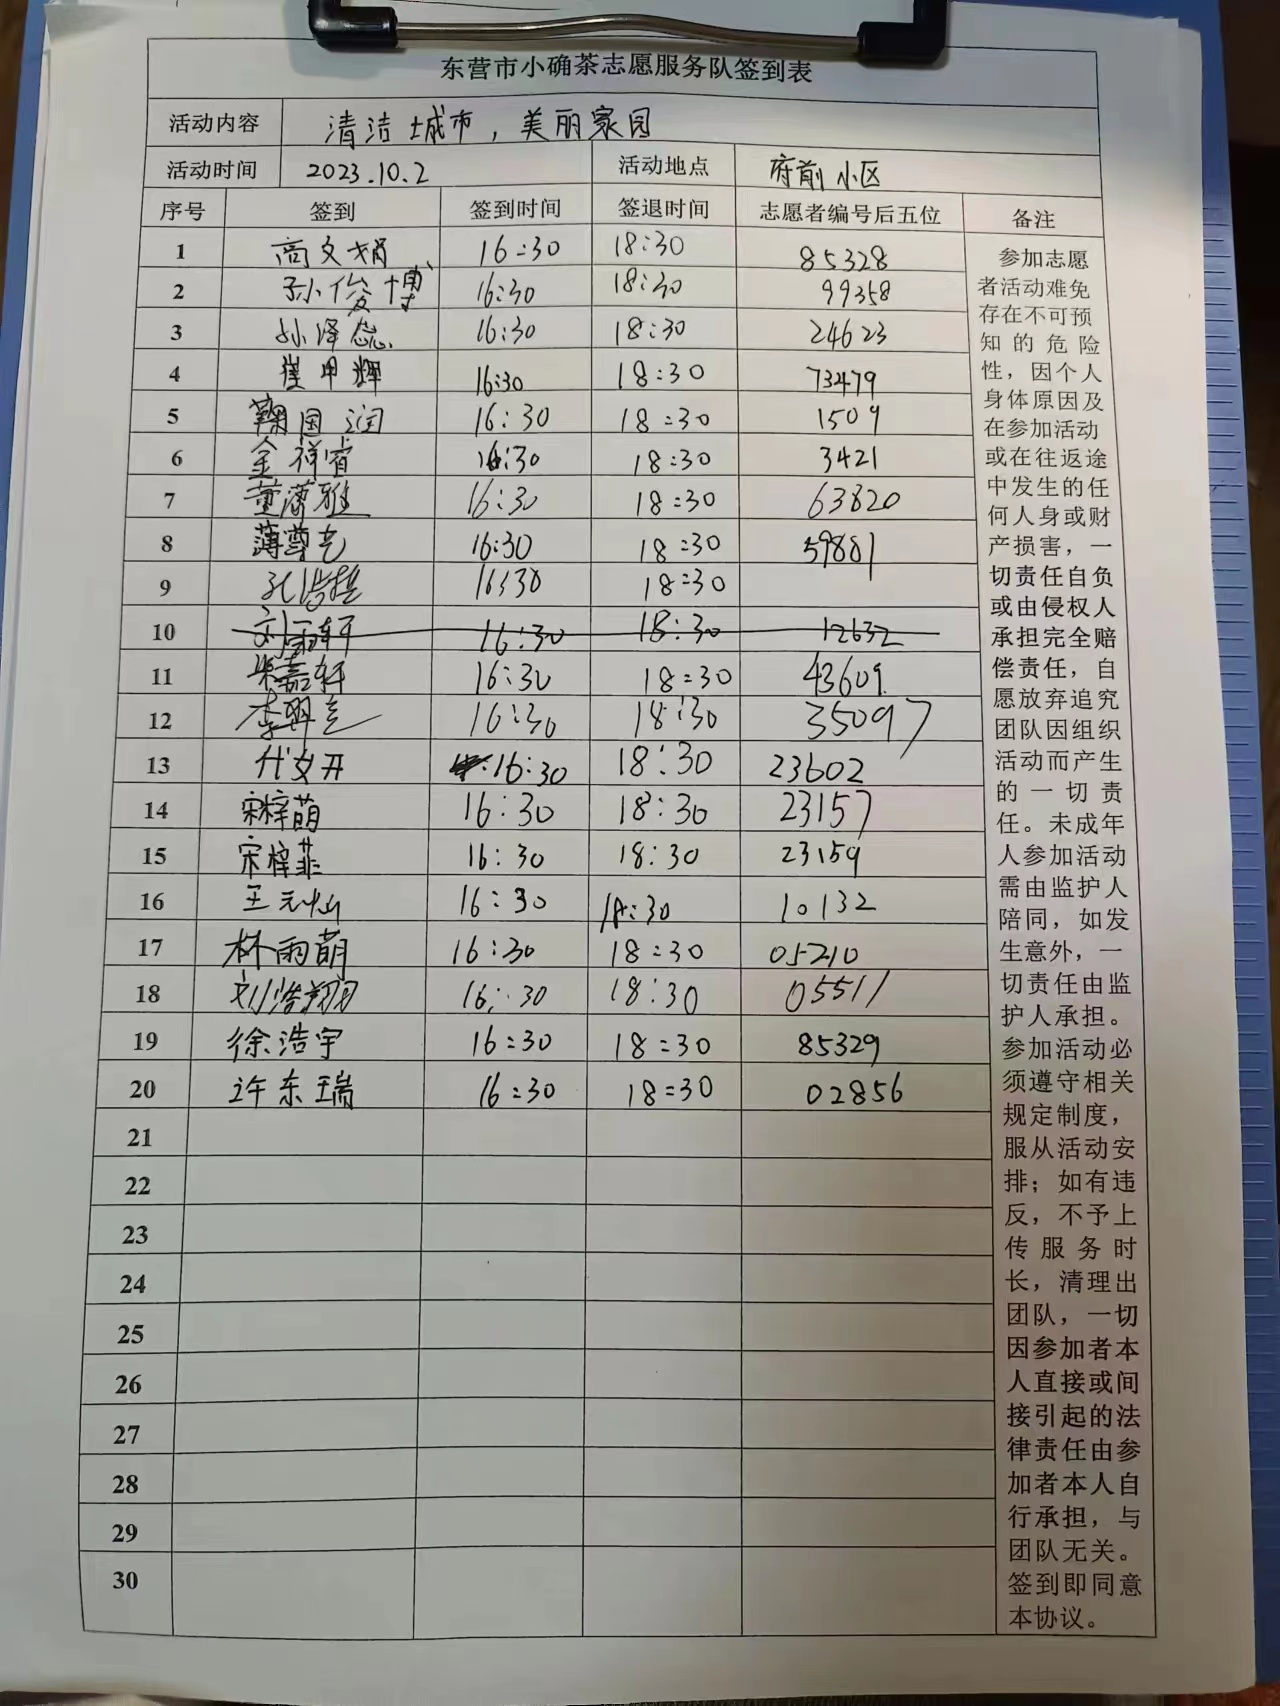 东营市小确茶志愿服务队签到表
活动内容 清洁城市，美丽家园
活动时间 2023.10.2 活动地点 府前小区
序号 签到 签到时间 签退时间 志愿者编号后五位 备注
1 高文娟 16:30 18:30 85328
2 孙俊博 16:30 18:30 99358
3 孙泽 16:30 18:30 24623
4 崔甲辉 16:30 18:30 73479
5 鞠国润 16:30 18:30 1509
6 金祥睿 16:30 18:30 3421
7 董潇雅 16:30 18:30 63820
8 薄尊 16:30 18:30 59881
9 孔浩 16:30 18:30
10 刘雨轩 16:30 18:30 12632
11 朱嘉轩 16:30 18:30 43609
12 李 16:30 18:30 35097
13 代文开 16:30 18:30 23602
14 宋梓萌 16:30 18:30 23157
15 宋梓菲 16:30 18:30 23159
16 王元灿 16:30 18:30 10132
17 林雨萌 16:30 18:30 05210
18 刘浩翔 16:30 18:30 05511
19 徐浩宇 16:30 18:30 85329
20 许东瑞 16:30 18:30 02856
21
22
23
24
25
26
27
28
29
30
参加志愿
者活动难免
存在不可预
知的危险
性，因个人
身体原因及
在参加活动
或在往返途
中发生的任
何人身或财
产损害，一
切责任自负
或由侵权人
承担完全赔
偿责任，自
愿放弃追究
团队因组织
活动而产生
的一切责
任。未成年
人参加活动
需由监护人
陪同，如发
生意外，一
切责任由监
护人承担。
参加活动必
须遵守相关
规定制度，
服从活动安
排；如有违
反，不予上
传服务时
长，清理出
团队，一切
因参加者本
人直接或间
接引起的法
律责任由参
加者本人自
行承担，与
团队无关。
签到即同意
本协议。